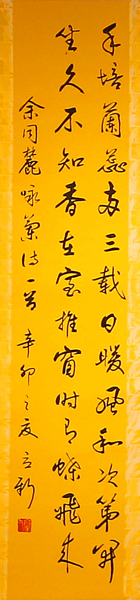 手培蘭蕊两三載日暖風和次第開
坐久不知香在室推窗时有蝶飛来
余同麓咏蘭诗一首 辛卯之夏 立新